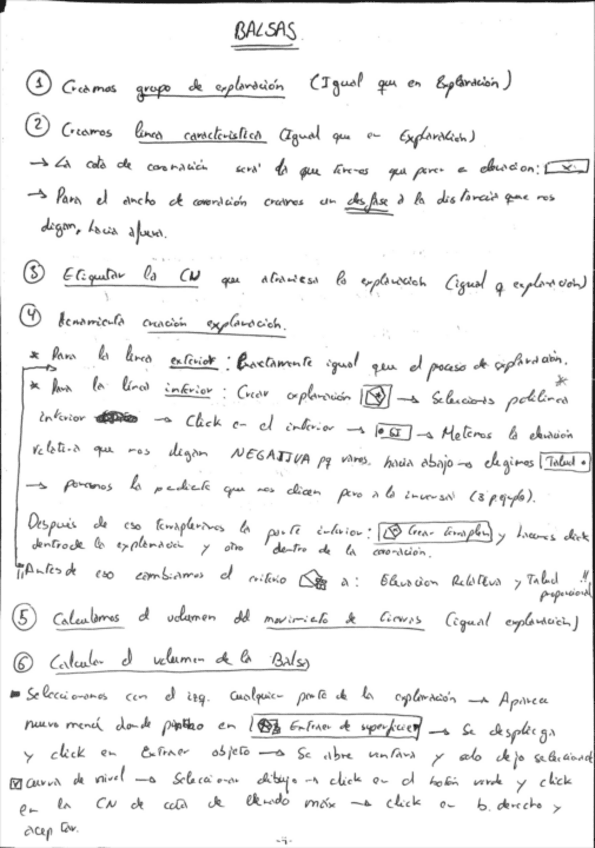 BALSAS
① Creamos grupo de explanación (Igual que en Explanación)
② Creamos línea característica (Igual que en Explanación)
→ La cota de coronación será la que tenemos que poner en elevación:
→ Para el ancho de coronación creamos un desfase a la distancia que nos
digan, hacia afuera.
③ Etiquetar la CN que atraviesa la explanación (igual q explanación)
④ Herramienta creación explanación.
* Para la línea exterior: Exactamente igual que el proceso de explanación.
* Para la línea interior: Crear explanación → Seleccionas polilínea
interior → Click en el interior → SI → Metemos la elevación
relativa que nos digan NEGATIVA pq vamos hacia abajo → elegimos Talud
→ ponemos la pendiente que nos dicen pero a la inversa (3 p.ejplo).
Después de eso terraplenamos la parte inferior: Crear terraplen y hacemos click
dentro de la explanación y otro dentro de la coronación.
¡¡Antes de eso cambiamos el criterio a: Elevación Relativa y Talud !!
proporcional
⑤ Calculamos el volumen del movimiento de tierras (igual explanación)
⑥ Calcular el volumen de la Balsa
Seleccionamos con el izq. cualquier parte de la explanación → Aparece
nuevo menú donde pincho en Extraer de superficie → Se despliega
y click en Extraer objeto → Se abre ventana y solo dejo seleccionado
☑ curva de nivel → Seleccionar dibujo → click en el botón verde y click
en la CN de cota de llenado máx → click en b. derecho y
aceptar.
-7-